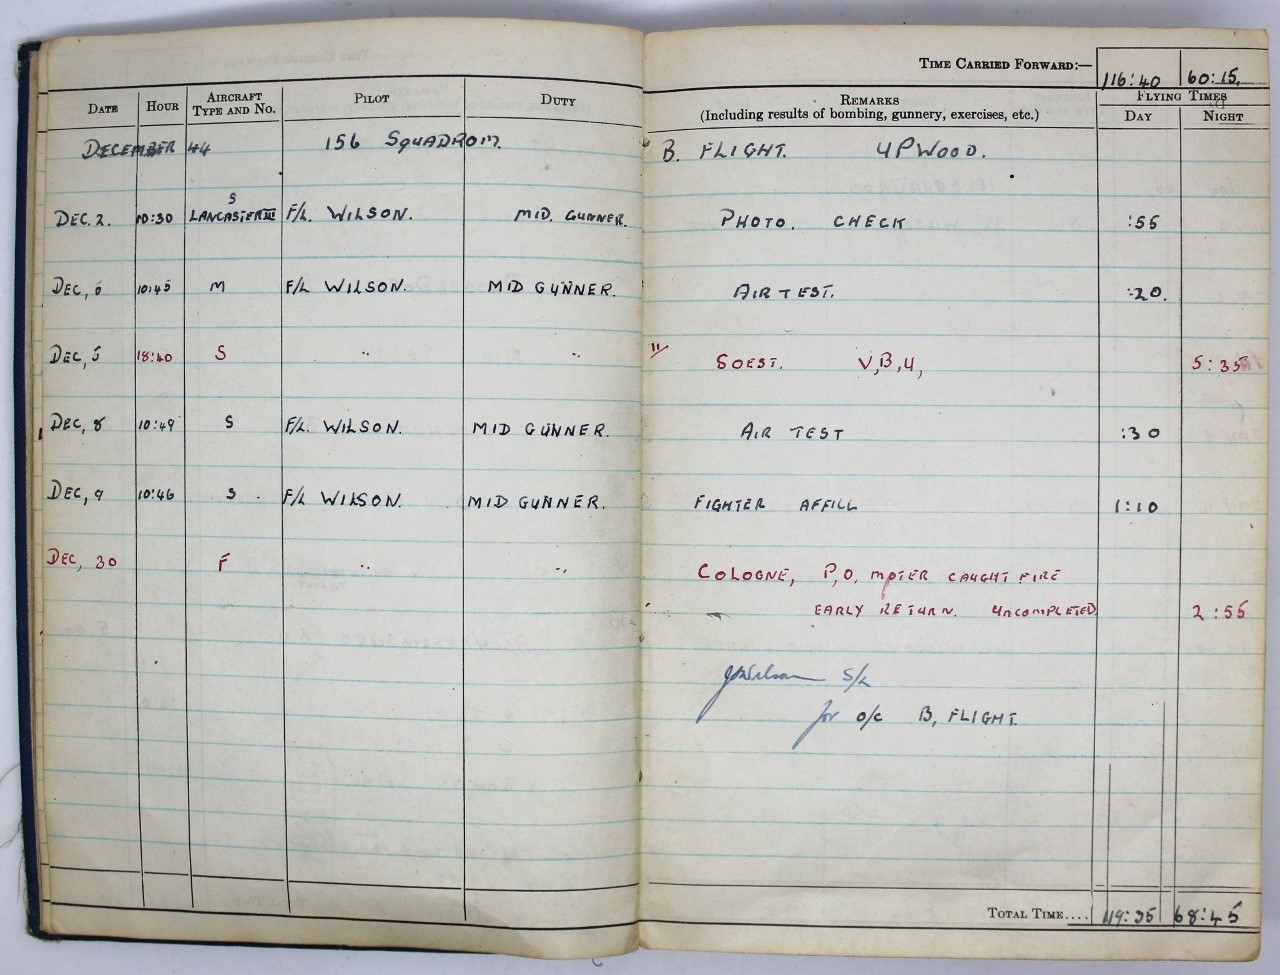 TIME CARRIED FORWARD:— 116:40 60:15
DATE HOUR AIRCRAFT TYPE AND NO. PILOT DUTY REMARKS (Including results of bombing, gunnery, exercises, etc.) FLYING TIMES DAY NIGHT
DECEMBER 44 156 SQUADRON. B. FLIGHT. UPWOOD.
DEC. 2. 10:30 S LANCASTER III F/L. WILSON. MID. GUNNER. PHOTO. CHECK :55
DEC, 6 10:45 M F/L WILSON. MID GUNNER. AIR TEST. :20.
DEC, 5 18:40 S " " 11/ SOEST. V,B,U, 5:35
DEC, 8 10:49 S F/L. WILSON. MID GUNNER. AIR TEST :30
DEC, 9 10:46 S F/L WILSON. MID GUNNER. FIGHTER AFFILL 1:10
DEC, 30 F " " COLOGNE, P,O, MOTER CAUGHT FIRE
EARLY RETURN. UNCOMPLETED. 2:55
Wilson S/L
for O/C B, FLIGHT.
TOTAL TIME.... 119:35 68:45